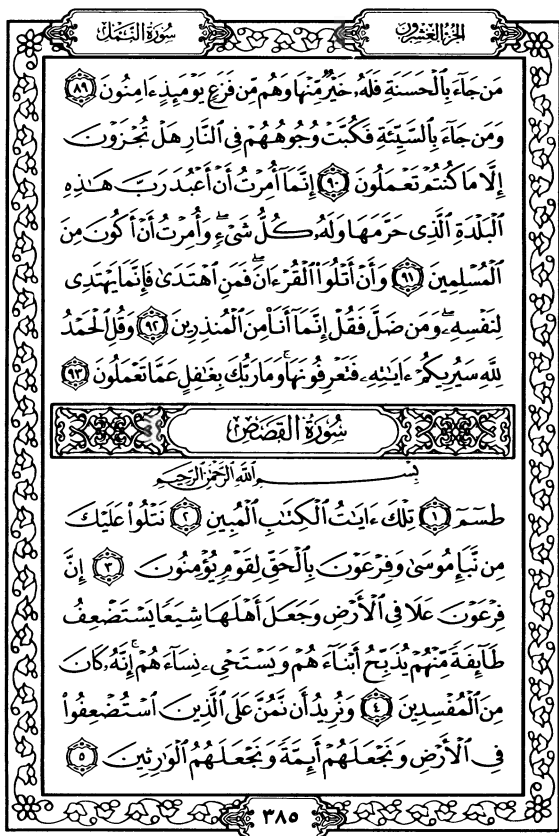 الجزء العشرون
سورة النمل
مَن جَآءَ بِٱلْحَسَنَةِ فَلَهُۥ خَيْرٌ مِّنْهَا وَهُم مِّن فَزَعٍ يَوْمَئِذٍ ءَامِنُونَ ٨٩
وَمَن جَآءَ بِٱلسَّيِّئَةِ فَكُبَّتْ وُجُوهُهُمْ فِى ٱلنَّارِ هَلْ تُجْزَوْنَ
إِلَّا مَا كُنتُمْ تَعْمَلُونَ ٩٠ إِنَّمَآ أُمِرْتُ أَنْ أَعْبُدَ رَبَّ هَٰذِهِ
ٱلْبَلْدَةِ ٱلَّذِى حَرَّمَهَا وَلَهُۥ كُلُّ شَىْءٍ ۖ وَأُمِرْتُ أَنْ أَكُونَ مِنَ
ٱلْمُسْلِمِينَ ٩١ وَأَنْ أَتْلُوَا۟ ٱلْقُرْءَانَ ۖ فَمَنِ ٱهْتَدَىٰ فَإِنَّمَا يَهْتَدِى
لِنَفْسِهِۦ ۖ وَمَن ضَلَّ فَقُلْ إِنَّمَآ أَنَا۠ مِنَ ٱلْمُنذِرِينَ ٩٢ وَقُلِ ٱلْحَمْدُ
لِلَّهِ سَيُرِيكُمْ ءَايَٰتِهِۦ فَتَعْرِفُونَهَا ۚ وَمَا رَبُّكَ بِغَٰفِلٍ عَمَّا تَعْمَلُونَ ٩٣
سورة القصص
بسم الله الرحمن الرحيم
طسٓمٓ ١ تِلْكَ ءَايَٰتُ ٱلْكِتَٰبِ ٱلْمُبِينِ ٢ نَتْلُوا۟ عَلَيْكَ
مِن نَّبَإِ مُوسَىٰ وَفِرْعَوْنَ بِٱلْحَقِّ لِقَوْمٍ يُؤْمِنُونَ ٣ إِنَّ
فِرْعَوْنَ عَلَا فِى ٱلْأَرْضِ وَجَعَلَ أَهْلَهَا شِيَعًا يَسْتَضْعِفُ
طَآئِفَةً مِّنْهُمْ يُذَبِّحُ أَبْنَآءَهُمْ وَيَسْتَحْىِۦ نِسَآءَهُمْ ۚ إِنَّهُۥ كَانَ
مِنَ ٱلْمُفْسِدِينَ ٤ وَنُرِيدُ أَن نَّمُنَّ عَلَى ٱلَّذِينَ ٱسْتُضْعِفُوا۟
فِى ٱلْأَرْضِ وَنَجْعَلَهُمْ أَئِمَّةً وَنَجْعَلَهُمُ ٱلْوَٰرِثِينَ ٥
٣٨٥